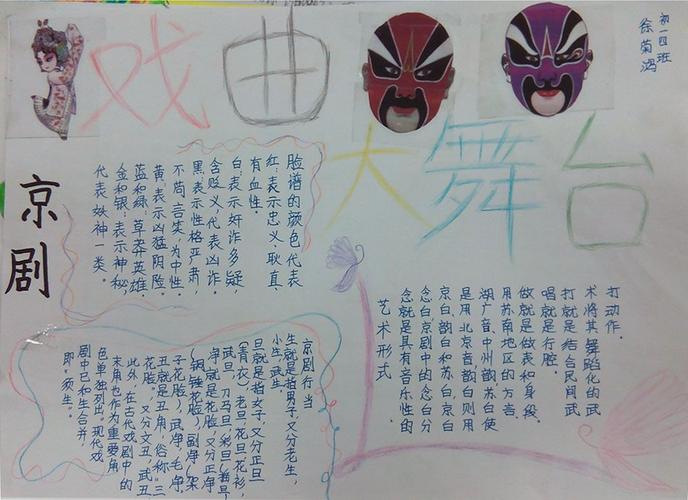 戏曲
大舞台
初一四班
徐菊鸿
京剧
脸谱的颜色代表
红:表示忠义、耿直、
有血性.
白:表示奸诈多疑,
含贬义,代表凶诈.
黑:表示性格严肃,
不苟言笑,为中性.
黄:表示凶猛阴险.
蓝和绿:草莽英雄.
金和银:表示神秘,
代表妖神一类.
艺术形式
念就是具有音乐性的
念白,京剧中的念白分
京白,韵白和苏白,京白
是用北京音,韵白则用
湖广音,中州韵,苏白使
用苏南地区的方言.
做就是做表和身段.
唱就是行腔.
打就是结合民间武
术将其舞蹈化的武
打动作.
京剧行当
生就是指男子,又分老生,
小生,武生.
旦就是指女子,又分正旦
(青衣),老旦,花旦,花衫,
武旦,刀马旦,彩旦
净就是花脸,又分正净
(铜锤花脸),副净(架
子花脸),武净,毛净.
丑就是丑角,俗称"三
花脸",又分文丑,武丑
此外,在古代戏剧中的
末角也作为重要角
色单独列出,现代戏
剧中已和生合并,
即"须生".